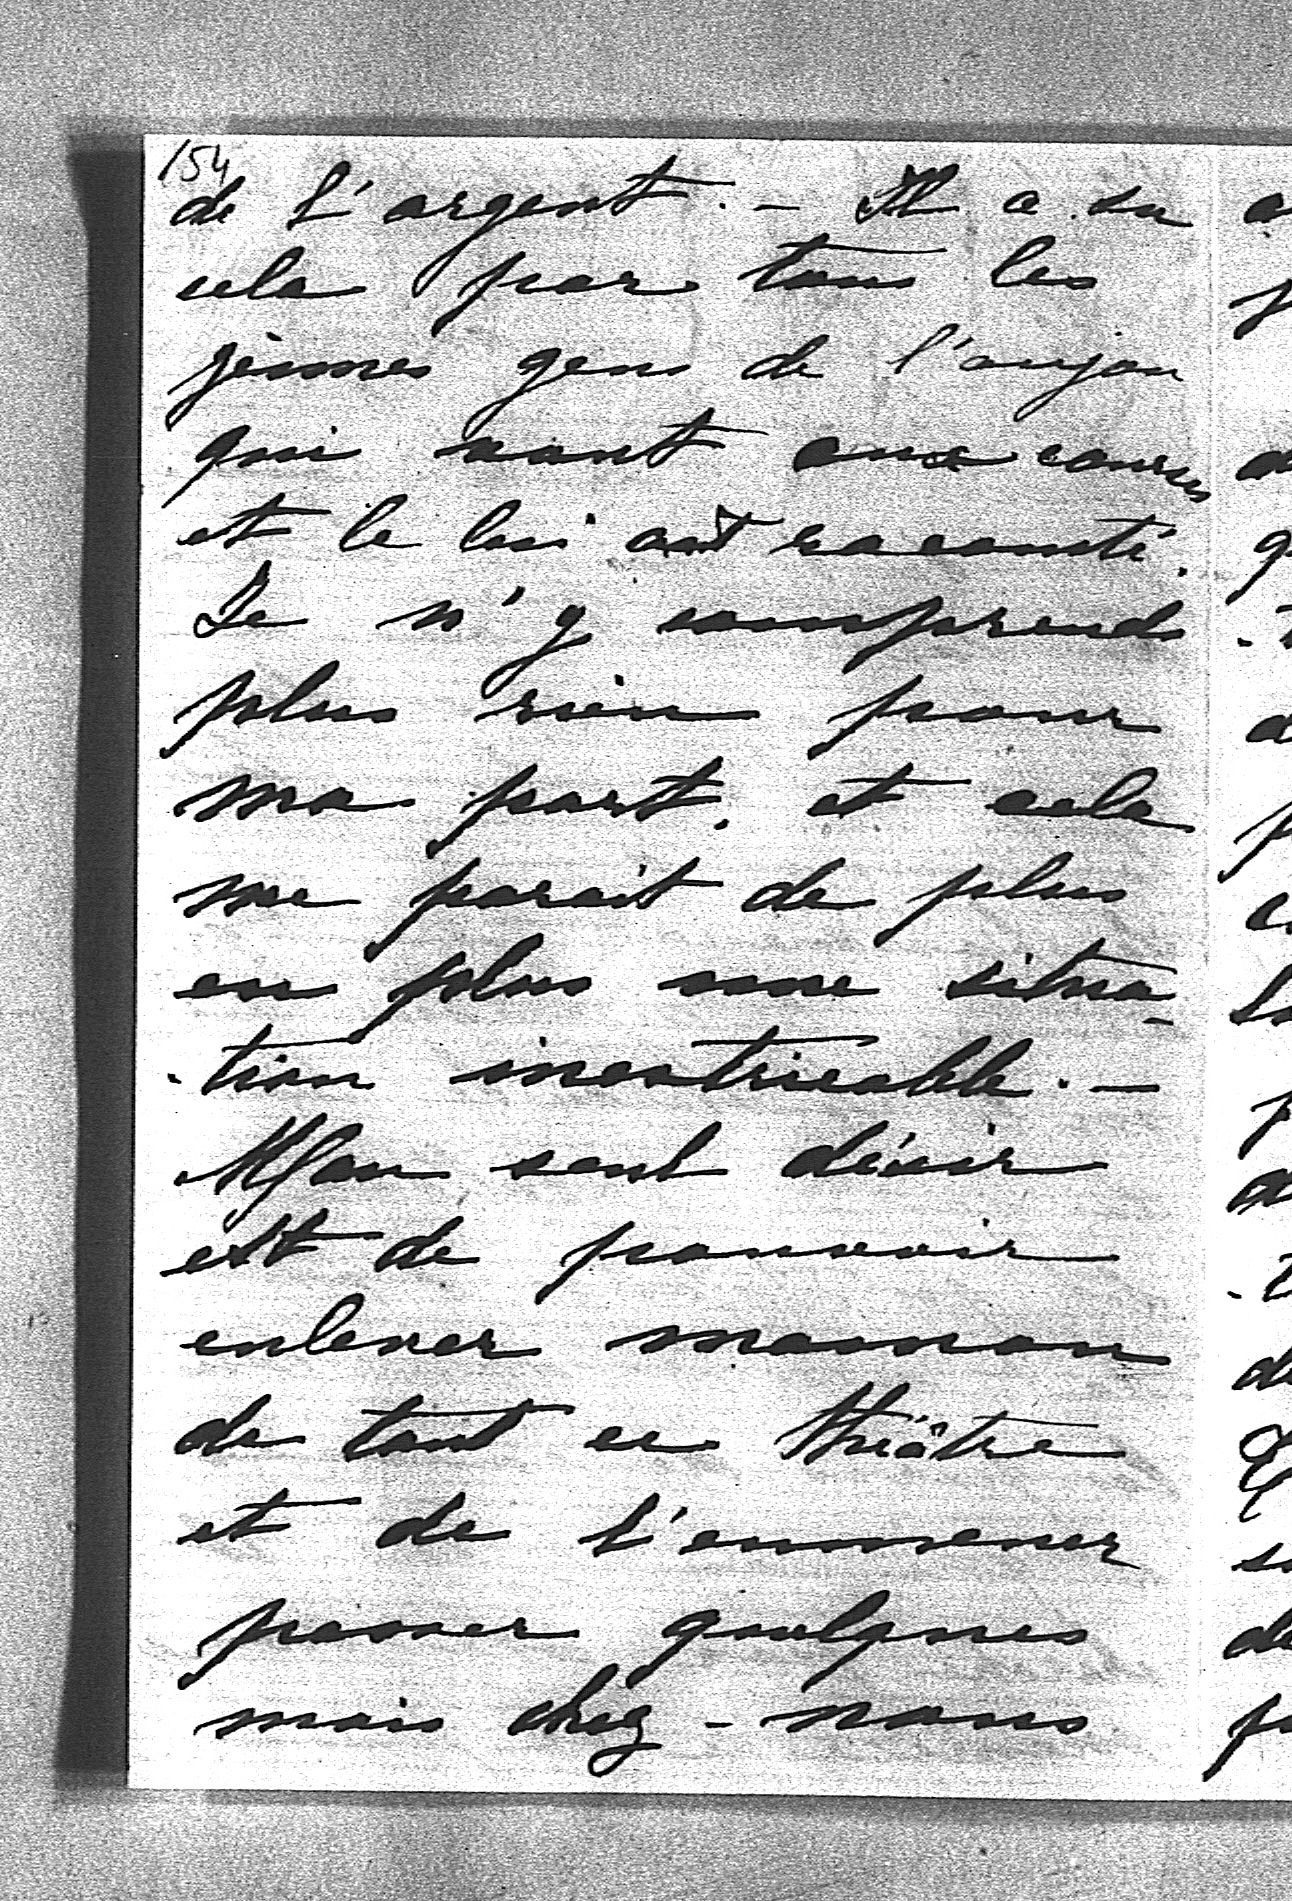 154
de l'argent. - Il a su
cela par tous les
jeunes gens de l'anjou
qui vont aux courses
et le lui ont raconté.
Je n'y comprends
plus rien pour
ma part, et cela
me parait de plus
en plus une situa-
-tion inextricable. -
Mon seul désir
est de pouvoir
enlever maman
de tout ce théâtre
et de l'emmener
passer quelques
mois chez-nous